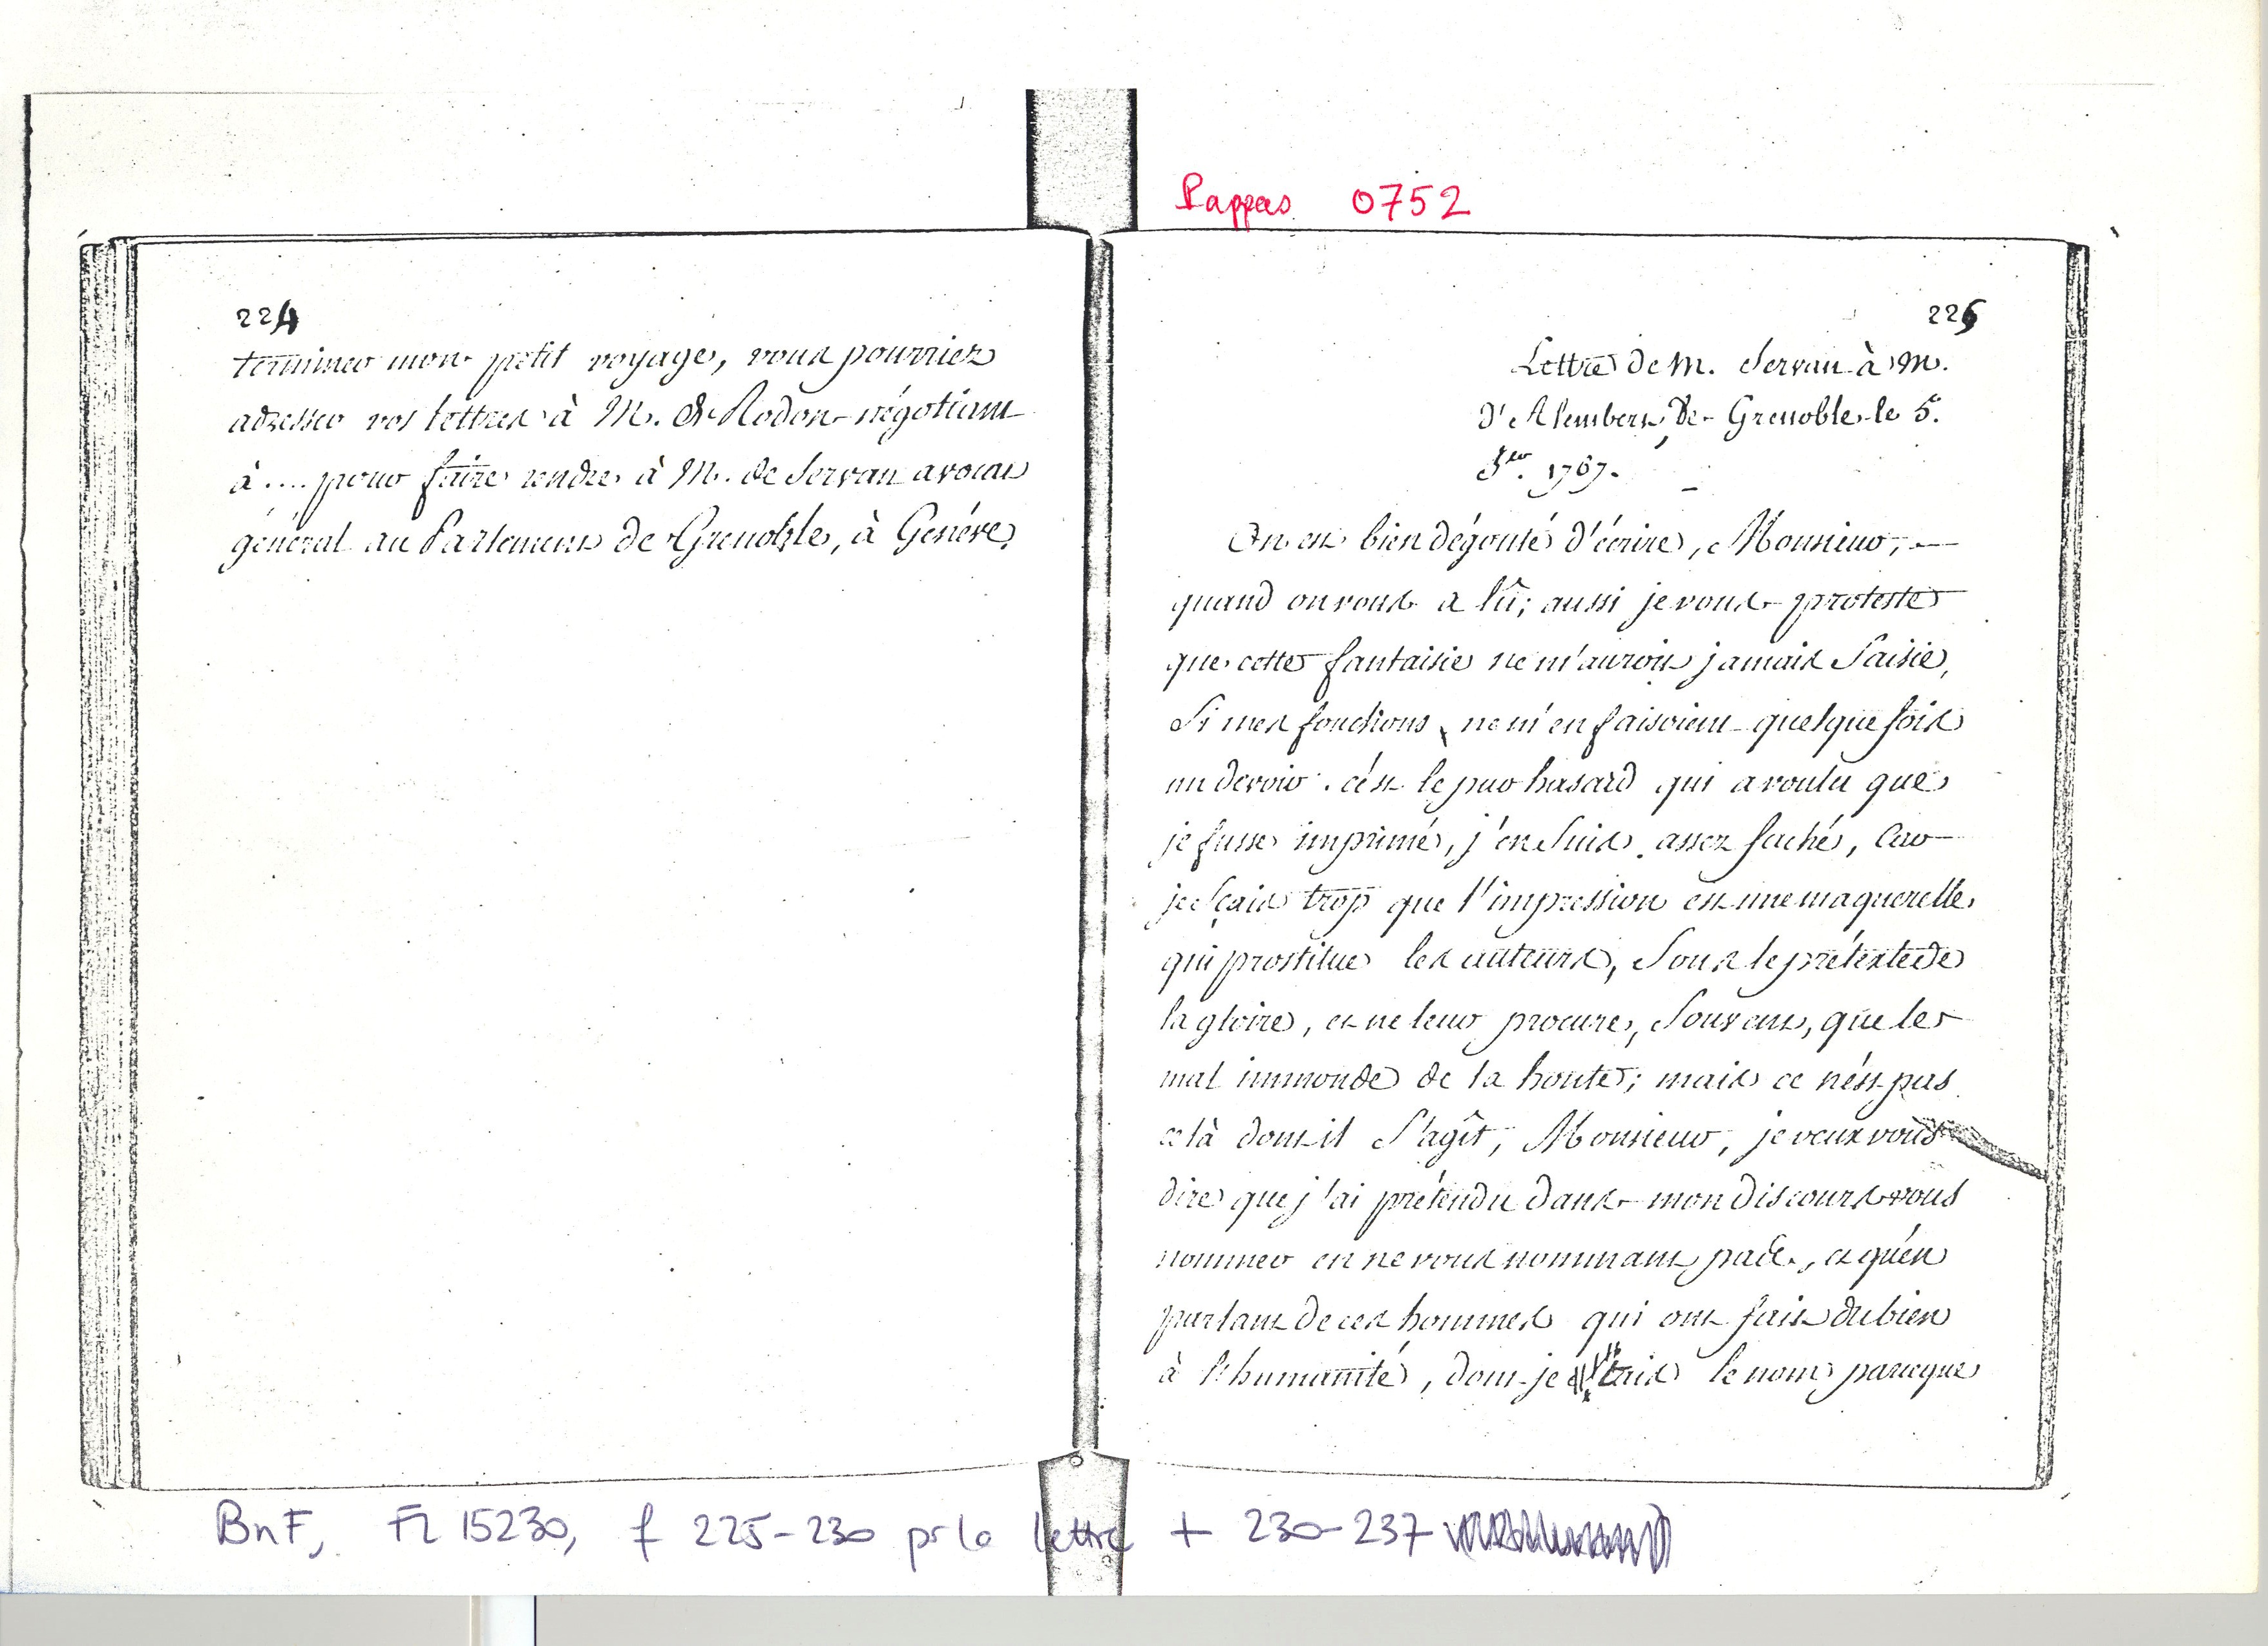 Pappas 0752
224
terminer mon petit voyage, vous pourriez
adresser vos lettres à M. de Rodon négotiant
à .... pour faire rendre à M. de Servan avocat
général au Parlement de Grenoble, à Genéve.
225
Lettre de M. Servan à M.
d'Alembert, de Grenoble le 5.
1767.
On est bien dégouté d'écrire, Monsieur,
quand on vous a lû; aussi je vous proteste
que cette fantaisie ne m'auroit jamais saisie,
Si mes fonctions, ne m'en faisoient quelque fois
un devoir. c'ést le pur hasard qui a voulu que
je fusse imprimé, j'en suis assez faché, car
je sçais trop que l'impression est une maquerelle
qui prostitue les auteurs, sous le prétexte de
la gloire, et ne leur procure, souvent, que le
mal immonde de la honte; mais ce n'ést pas
celà dont il s'agît, Monsieur, je veux vous
dire que j'ai prétendu dans mon discours vous
nommer en ne vous nommant pas, et qu'en
parlant de ces hommes qui ont fait du bien
à l'humanité, dont je tais le nom parceque
BnF, Fr 15230, f 225-230 pr la lettre + 230-237